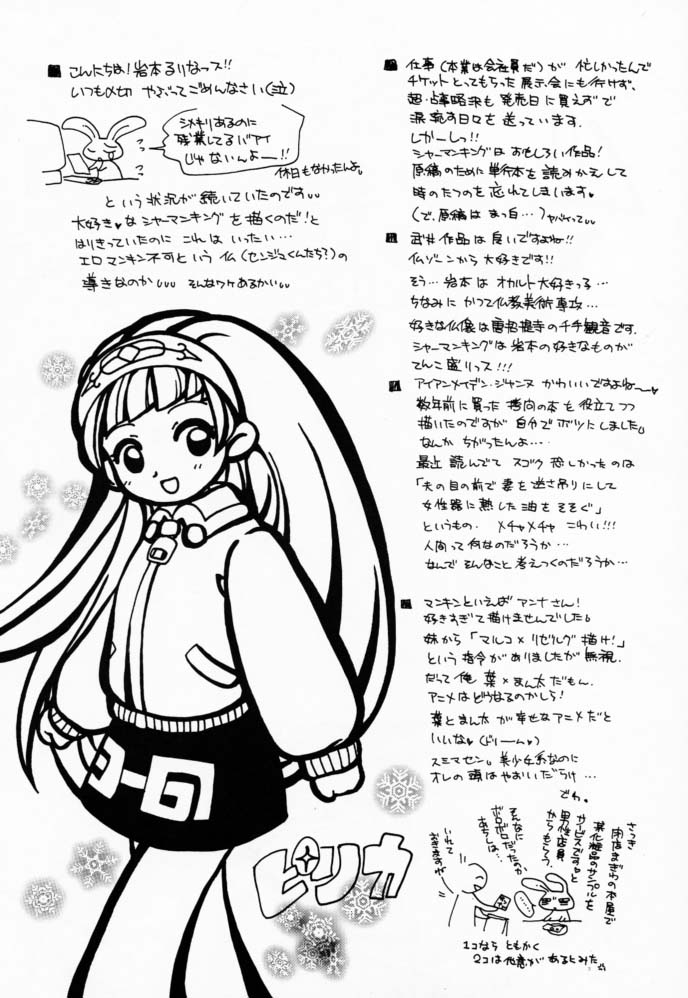 こんにちは!岩本るりなっス!!
いつも〆切 やぶってごめんなさい(泣)
シメキリあるのに
残業してるバアイ
じゃないんよー!!
休日もなかったんよ。
という状況が続いていたのです
大好き♥なシャーマンキングを描くのだ!と
はりきっていたのに これはいったい…
エロマンキン不可という仏(センジュくんたち?)の
導きなのか そんなワケあるかい
ピリカ
仕事(本業は会社員だ)が 忙しかったんで
チケットとってもらった展示会にも行けず、
超・占事略決も 発売日に買えずで
涙 乾す日々を 送っています。
しかーしっ!!
シャーマンキングは おもしろい作品!
原稿のために 単行本を 読みかえして
時のたつのを 忘れてしまいます♥
(で、原稿は まっ白…)ヤバイって
武井作品は良いですよね!!
仏ゾーンから大好きです!!
そう…岩本は オカルト大好きっ子…
ちなみに かつて仏教美術専攻…
好きな仏像は唐招提寺の千手観音です。
シャーマンキングは岩本の好きなものが
てんこ盛りっス!!!
アイアンメイデン・ジャンヌ かわいいですよねー♥
数年前に買った 拷問の本を役立てつつ
描いたのですが 自分でボツにしました。
なんか ちがったんよ…
最近 読んでて スゴク 恐しかったのは
「夫の目の前で 妻を逆さ吊りにして
女性器に熱した油をそそぐ」
というもの。 メチャメチャ こわい!!!
人間って何なのだろうか…
なんで そんなこと 考えつくのだろうか…
マンキンといえば アンナさん!
好きすぎて描けませんでした。
妹から「マルコ×リゼルグ 描け!」
という指令がありましたが無視。
だって俺 葉×まん太だもん。
アニメはどうなるのかしら!
葉とまん太が幸せなアニメだと
いいな♥(ドリーム♥)
スミマセン。美少女系なのに
オレの頭はやおいだらけ…
でわ。
さっき
閉店まぎわの本屋で
某化粧品のサンプルを
サービスですっと
男性店員
からもらう。
そんなに
ボロボロだったのか
あちしは…
いれて
おきますね
1コなら ともかく
2コは他意があるとみた。